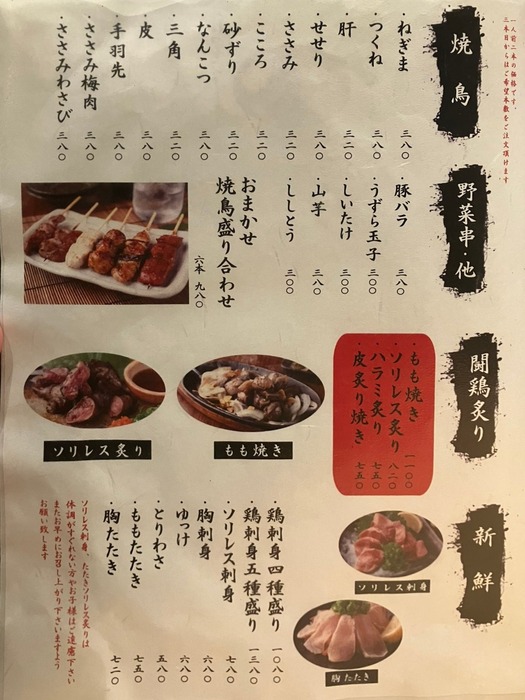 一人前二本の価格です。
三本目からはご希望本数をご注文頂けます
焼鳥
・ねぎま 三八〇
・つくね 三八〇
・肝 三二〇
・せせり 三八〇
・ささみ 三二〇
・こころ 三二〇
・砂ずり 三二〇
・なんこつ 三八〇
・三角 三二〇
・皮 三八〇
・手羽先 三八〇
・ささみ梅肉 三八〇
・ささみわさび 三八〇
野菜串・他
・豚バラ 三八〇
・うずら玉子 三〇〇
・しいたけ 三〇〇
・山芋 三八〇
・ししとう 三〇〇
おまかせ
焼鳥盛り合わせ
六本 九八〇
闘鶏炙り
・もも焼き 一一〇〇
・ソリレス炙り 八二〇
・ハラミ炙り 七五〇
・皮炙り焼き 七五〇
もも焼き
ソリレス炙り
新鮮
・鶏刺身四種盛り 一〇八〇
・鶏刺身五種盛り 一三八〇
・ソリレス刺身 七八〇
・胸刺身 六八〇
・ゆっけ 六八〇
・とりわさ 五八〇
・ももたたき 七五〇
・胸たたき 七二〇
ソリレス刺身
胸たたき
ソリレス刺身、たたきソリレス炙りは
体調がすぐれない方やお子様はご遠慮下さい
またお早めにお召し上がり下さいますよう
お願い致します